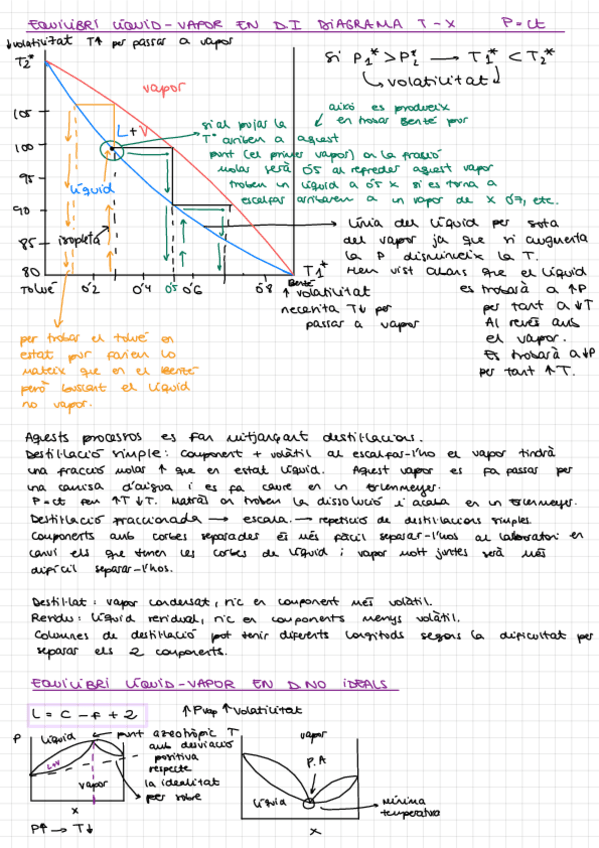 EQUILIBRI LÍQUID-VAPOR EN D.I DIAGRAMA T-X P=ct
↓volatilitat T↑ per passar a vapor
T2*
si P1* > P2* → T1* < T2*
↳ volatilitat
vapor
105
100
95
90
85
80
L+V
líquid
isopleta
Toluè 0'2 0'4 0'5 0'6 0'8 Benzè
T1*
això es produeix
en trobar Benzè pur
si al pujar la
Tª arriben a aquest
punt (el primer vapor) on la fracció
molar serà 0'5 al refredar aquest vapor
troben un líquid a 0'5 x si es torna a
escalfar arribaren a un vapor de x 0'7, etc.
↑ volatilitat
necesita T↓ per
passar a vapor
línia del líquid per sota
del vapor ja que si augmenta
la P disminueix la T.
Hem vist abans que el líquid
es trobarà a ↑P
per tant a ↓T
Al revés amb
el vapor.
Es trobarà a ↓P
per tant ↑T.
per trobar el toluè en
estat pur farien lo
mateix que en el Benzè
però buscant el líquid
no vapor.
Aquests processos es fan mitjançant destil·lacions.
Destil·lació simple: component + volàtil al escalfar-l'ho el vapor tindrà
una fracció molar ↑ que en estat líquid. Aquest vapor es fa passar per
una camisa d'aigua i es fa caure en un erlenmeyer.
P=ct fem ↑T ↓T. Matràs on troben la dissolució i acaba en un erlenmeyer.
Destil·lació fraccionada → escala. → repetició de destil·lacions simples.
Components amb corbes separades és més fàcil separar-l'hos al laboratori en
canvi els que tenen les corbes de líquid i vapor molt juntes serà més
difícil separar-l'hos.
Destil·lat: vapor condensat, ric en component més volàtil.
Residu: líquid residual, ric en components menys volàtil.
Columnes de destil·lació pot tenir diferents longituds segons la dificultat per
separar els 2 components.
EQUILIBRI LÍQUID-VAPOR EN D.NO IDEALS
L = C - F + 2
↑Pvap ↑volatilitat
P
líquid
L+V
vapor
x
P↑ → T↓
punt azeotròpic T
amb desviació
positiva
respecte
la idealitat
per sobre
vapor
P.A
líquid
x
mínima
temperatura